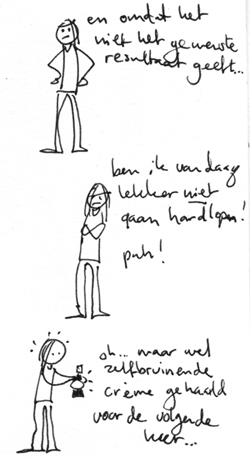 en omdat het
niet het gewenste
resultaat geeft...
ben ik vandaag
lekker niet
gaan hardlopen!
puh!
oh... maar wel
zelfbruinende
crème gehaald
voor de volgende
keer...